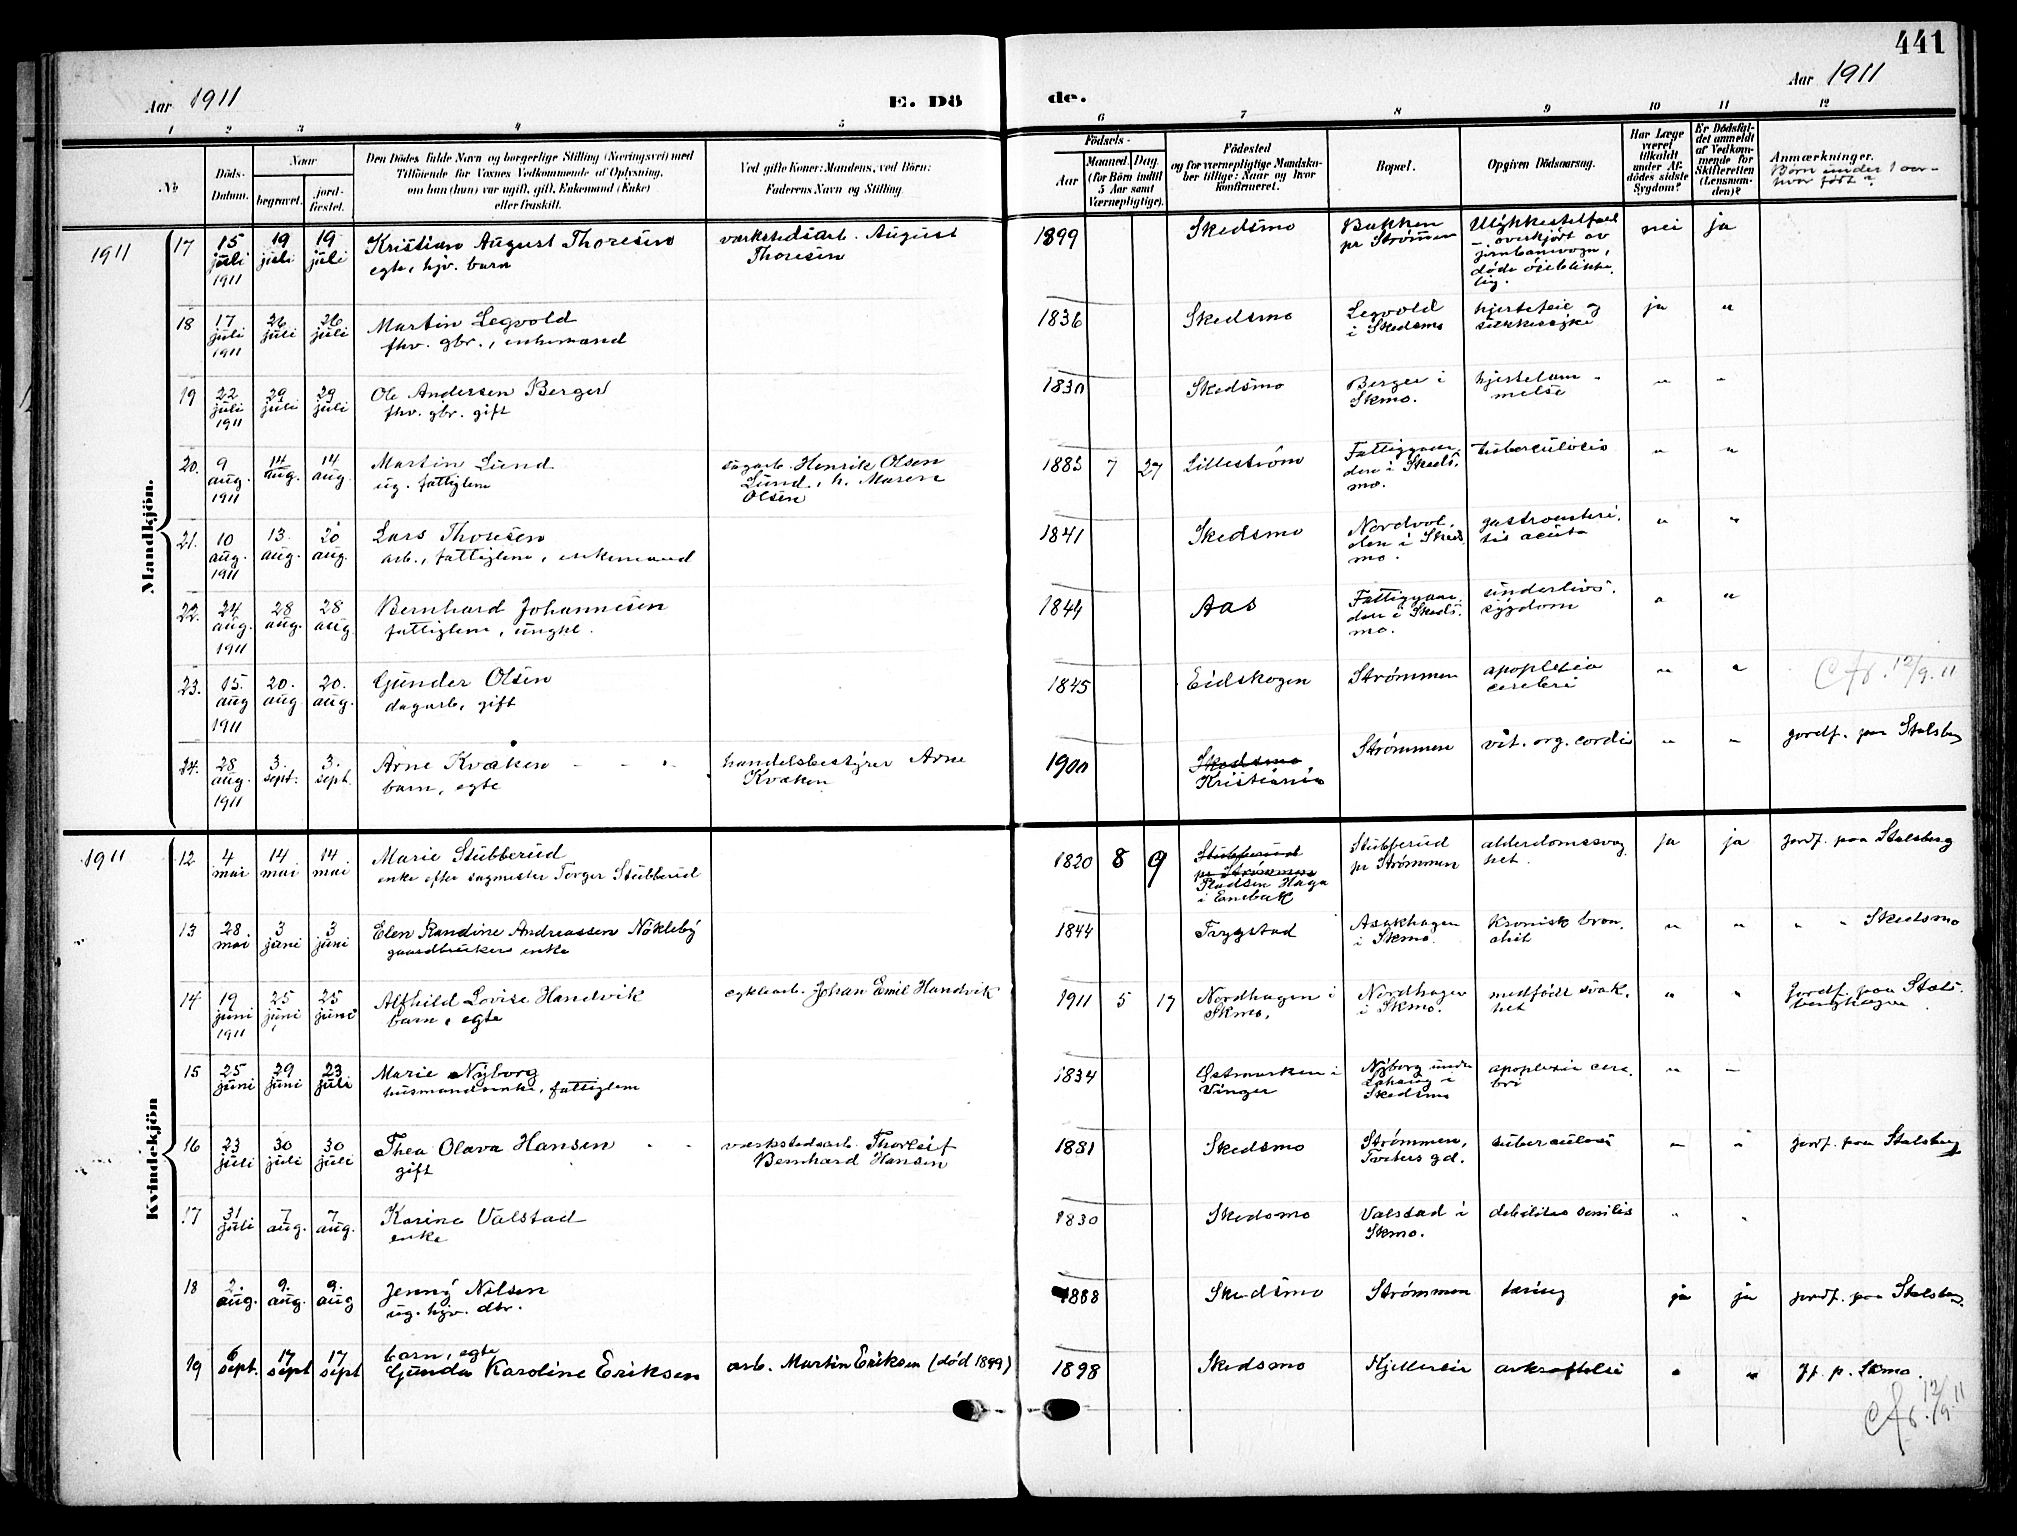 441
Aar 1911
E. Dö
de.
Aar 1911
1 2 3 4 5 6 7 8 9 10 11 12
No
Döds-Datum.
Naar
begravet.
jord-fæstet.
Den Dödes fulde Navn og borgerlige Stilling (Næringsvei) med
Tilföiende for Voxnes Vedkommende af Oplysning,
om han (hun) var ugift, gift, Enkemand (Enke)
eller fraskilt.
Ved gifte Koner: Mandens, ved Börn:
Faderens Navn og Stilling.
Födsels-
Aar
Maaned. Dag.
(for Börn indtil
5 Aar samt
Værnepligtige).
Födested
og for værnepligtige Mandska-
ber tillige: Naar og hvor
konfirmeret.
Bopæl.
Opgiven Dödsaarsag.
Har Læge
været
tilkaldt
under Af-
dödes sidste
Sygdom?
Er Dödsfal-
det anmeldt
af Vedkom-
mende for
Skifteretten
(Lensman-
den)?
Anmærkninger.
Börn under 1 aar
hvor født?
Mandkjön.
1911
17 15 juli 1911 19 juli 19 juli Kristian August Thoresen
egte, hjv. barn
værkstedsarb. August
Thoresen
1899 Skedsmo Bakken
pr Strömmen
Ulykkestilfæld
- overkjørt av
jernbanevogn,
døde öieblikke-
lig.
nei ja
18 17 juli 1911 26 juli 26 juli Martin Legvold
fhv. gbr., enkemand
1836 Skedsmo Legvold
i Skedsmo
hjertefeil og
sukkersyke
ja "
19 22 juli 1911 29 juli 29 juli Ole Andersen Berger
fhv. gbr. gift
1830 Skedsmo Berger i
Skmo.
hjertelam-
melse
" "
20. 9 aug. 1911 14 aug. 14 aug. Martin Lund
ug. fattiglem
sagarb. Henrik Olsen
Lund, h. Maren
Olsen
1883 7 27 Lilleström Fattiggaar-
den i Skeds-
mo.
tuberculosis " "
21. 10 aug. 1911 13 aug. 20 aug. Lars Thoresen
arb., fattiglem, enkemand
1841 Skedsmo Nordvol-
den i Skeds-
mo.
gastroenteri-
tis acuta
" "
22. 24 aug. 1911 28 aug. 28 aug. Bernhard Johannesen
fattiglem, ungkl.
1844 Aas Fattiggaar-
den i Skeds-
mo.
underlivs-
sygdom
" "
23. 15. aug 1911 20. aug 20. aug. Gunder Olsen
dagarb, gift
1845 Eidskogen Strømmen apoplexia
cerebri
" "
12/9. 11
24. 28 aug. 1911 3. sept. 3. sept. Arne Kvaken
barn, egte
handelsbestyrer Arne
Kvaken
1900 Skedsmo
Kristiania
Strømmen vit. org. cordis " " jordf. paa Stalsberg
Kvindekjön
1911
12 4 mai 14 mai 14 mai Marie Stubberud
enke efter sagmester Torger Stubberud
1820 8 9 Stubberud
pr Strømmen
Pladsen Haga
i Enebak
Stubberud
pr Strømmen
alderdomssvag
het.
ja ja jordf. paa Stalsberg
13 28 mai 3 juni 3 juni Elen Randine Andreassen Nökleby
gaardbrukers enke
1844 Trygstad Asakhagen
i Skmo.
Kronisk bron-
chit
" " " " Skedsmo
14 19 juni 1911 25 juni 25 juni Alfhild Lovise Handvik
barn, egte
cyklearb. Johan Emil Handvik
1911 5 17 Nordhagen i
Skmo.
Nordhagen
i Skmo.
medfödt svak-
het
" " Jordf. paa Stals-
berghagen
15 25 juni 29 juni 23 juli Marie Nyborg
husmandsenke, fattiglem
1834 Østmarken i
Vinger
Nyborg under
i
Skedsmo
apoplexia cere-
bri
" "
16 23 juli 30 juli 30 juli Thea Olava Hansen
gift
værkstedsarb. Thorleif
Bernhard Hansen
1881 Skedsmo Strømmen,
Tveters gd.
tuberculosis " " jordf. paa Stalsberg
17 31 juli 7 aug. 7 aug. Karine Valstad
enke
1830 Skedsmo Valstad i
Skmo.
debilitas senilis " "
18 2. aug. 9. aug. 9. aug Jenny Nilsen
ug. hjv. dtr.
1888 Skedsmo Strømmen tæring ja ja jordf. paa Stalsberg.
19 6 sept. 17 sept 17 sept barn, egte
Gunda Karoline Eriksen
arb. Martin Eriksen (död 1899)
1898 Skedsmo Kjellerlia avkræftelse " " Jf. p. Skmo.
12/9. 11